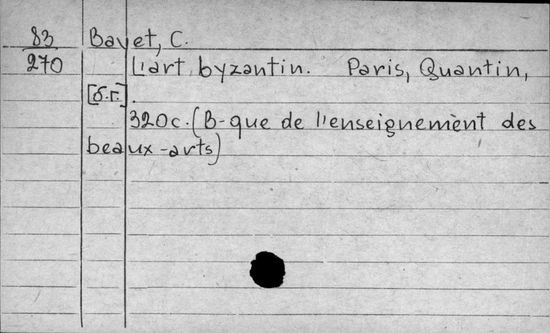 83 Bayet, C.
270 L'art byzantin. Paris, Quantin,
[б.г.].
320c. (B-que de l'enseignement des
beaux-arts)